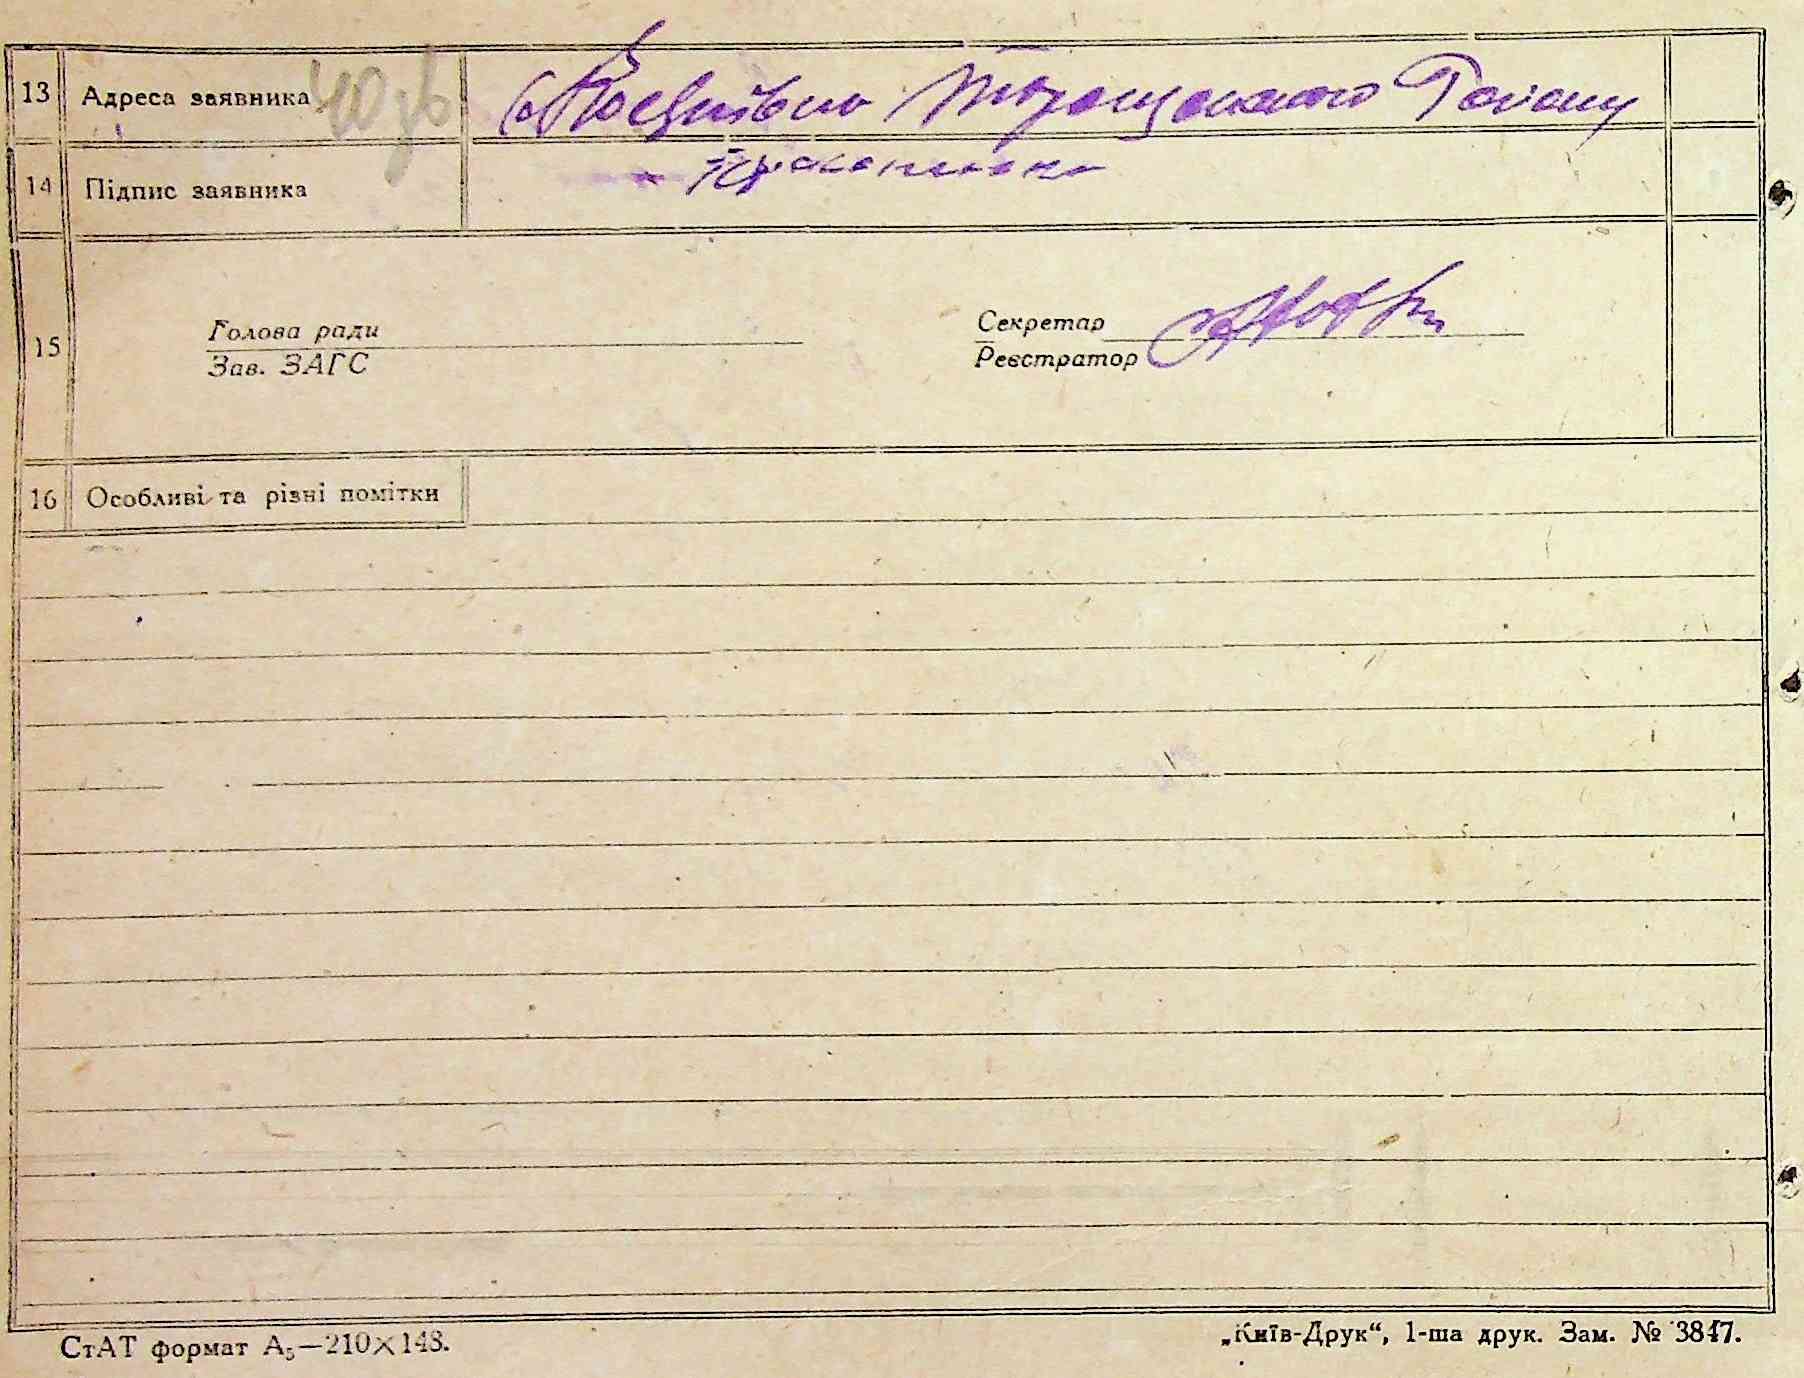 13 Адреса заявника Таращанского Району
14 Підпис заявника
15 Голова ради Секретар
Зав. ЗАГС Реєстратор
16 Особливі та різні помітки
СтАТ формат А₅—210×148. „Київ-Друк“, 1-ша друк. Зам. № 3847.